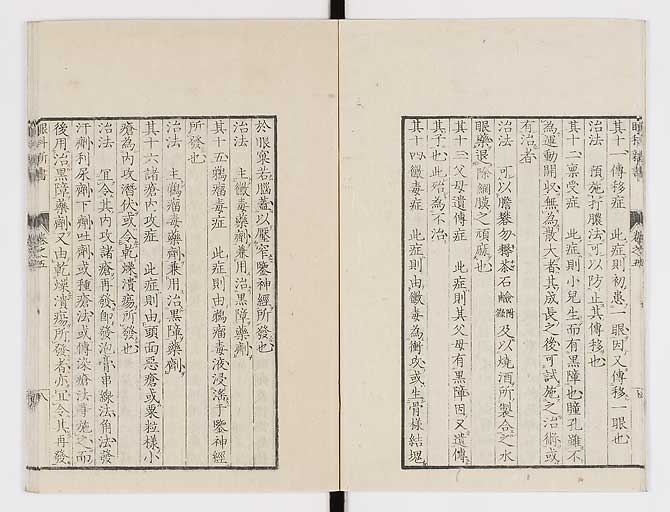 其十一傳移症　此症則初患一眼因又傳移一眼也
治法　預施打膿法可以防止其傳移也
其十二禀受症　此症則小兒生而有黒障也瞳孔雖不
為運動開収無為震大者其成長之後可試施之治術或
有治者
治法　可以膽礬勿礬茶石鹼及以燒酒所製合之水
眼藥退除網膜之頑麻也
其十三父母遺傳症　此症則其父母有黒障因又遺傳
其子也此殆為不治
其十四黴毒症　此症則由黴毒為衝攻或生骨様結塊
於眼窠若腦蓋以壓窄鑒神經所發也
治法　主黴毒藥劑兼用治黒障藥劑
其十五鵶瘤毒症　此症則由鵶瘤毒液浸滛于鑒神經
所發也
治法　主鵶瘤毒藥劑兼用治黒障藥劑
其十六諸瘡内攻症　此症則由頭面惡瘡或粟粒様小
瘡為内攻潜伏或令乾燥潰瘍所發也
治法　宜令其内攻諸瘡再發即發泡膏串線法角法發
汗劑利尿劑下劑吐劑或種瘡法或傳染瘡法等施之而
後用治黒障藥劑又由乾燥潰瘍所發者亦宜令其再發
眼科新書　卷之五　八